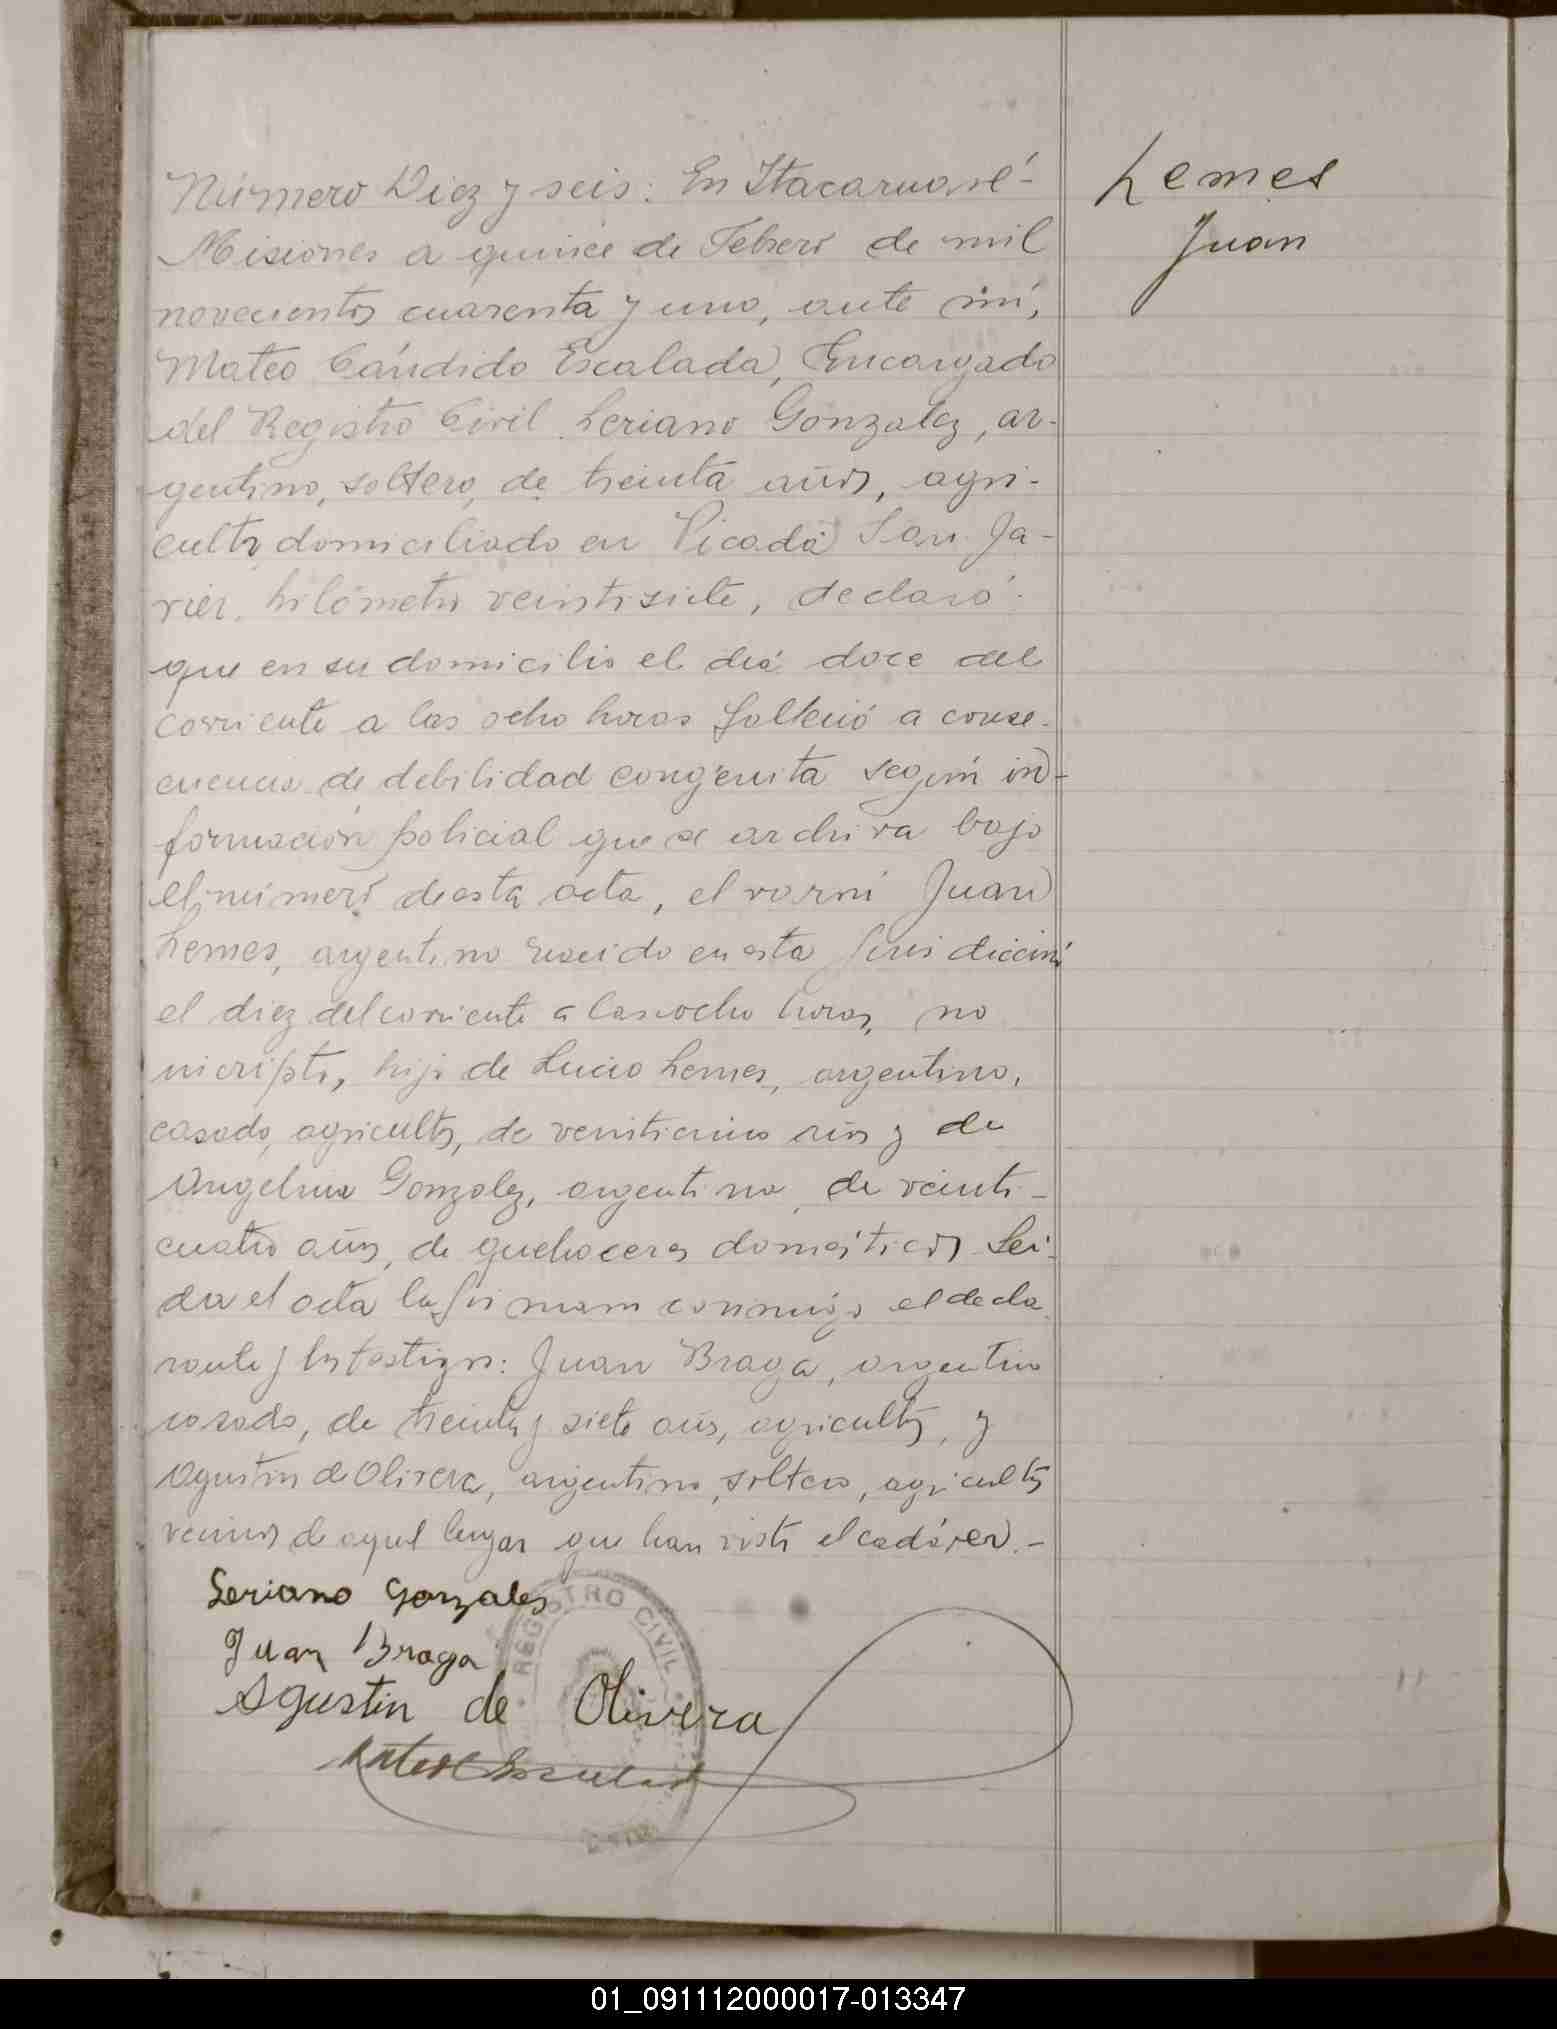 Número Diez y seis: En Itacaruaré-
Misiones a quince de Febrero de mil
novecientos cuarenta y uno, ante mí,
Mateo Cándido Escalada, Encargado
del Registro Civil. Seriano Gonzalez, ar-
gentino, soltero, de treinta años, agri-
cultor domiciliado en Picada San Ja-
vier, kilómetro veintisiete, declaró:
que en su domicilio el día doce del
corriente a las ocho horas falleció a conse-
cuencia de debilidad congénita según in-
formación policial que se archiva bajo
el número de esta acta, el varón Juan
Lemes, argentino nacido en esta jurisdicción
el diez del corriente a las ocho horas, no
inscripto, hijo de Lucio Lemes, argentino,
casado, agricultor, de veinticinco años y de
Angelina Gonzalez, argentina, de veinti-
cuatro años, de quehaceres domésticos. Leí-
da el acta la firmam conmigo el decla
rante y los testigos: Juan Braga, argentino
casado, de treinta y siete años, agricultor, y
Agustin de Olivera, argentino, soltero, agricultor
vecinos de aquel lugar que han visto el cadáver.-
Seriano Gonzales
Juan Braga
Agustin de Olivera
REGISTRO CIVIL
Lemes
Juan
01_091112000017-013347